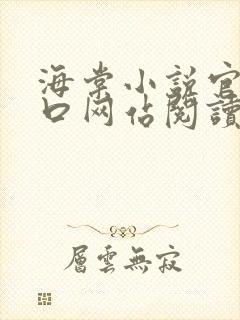 海棠小説官
口网佔閱讀
層雲無寂